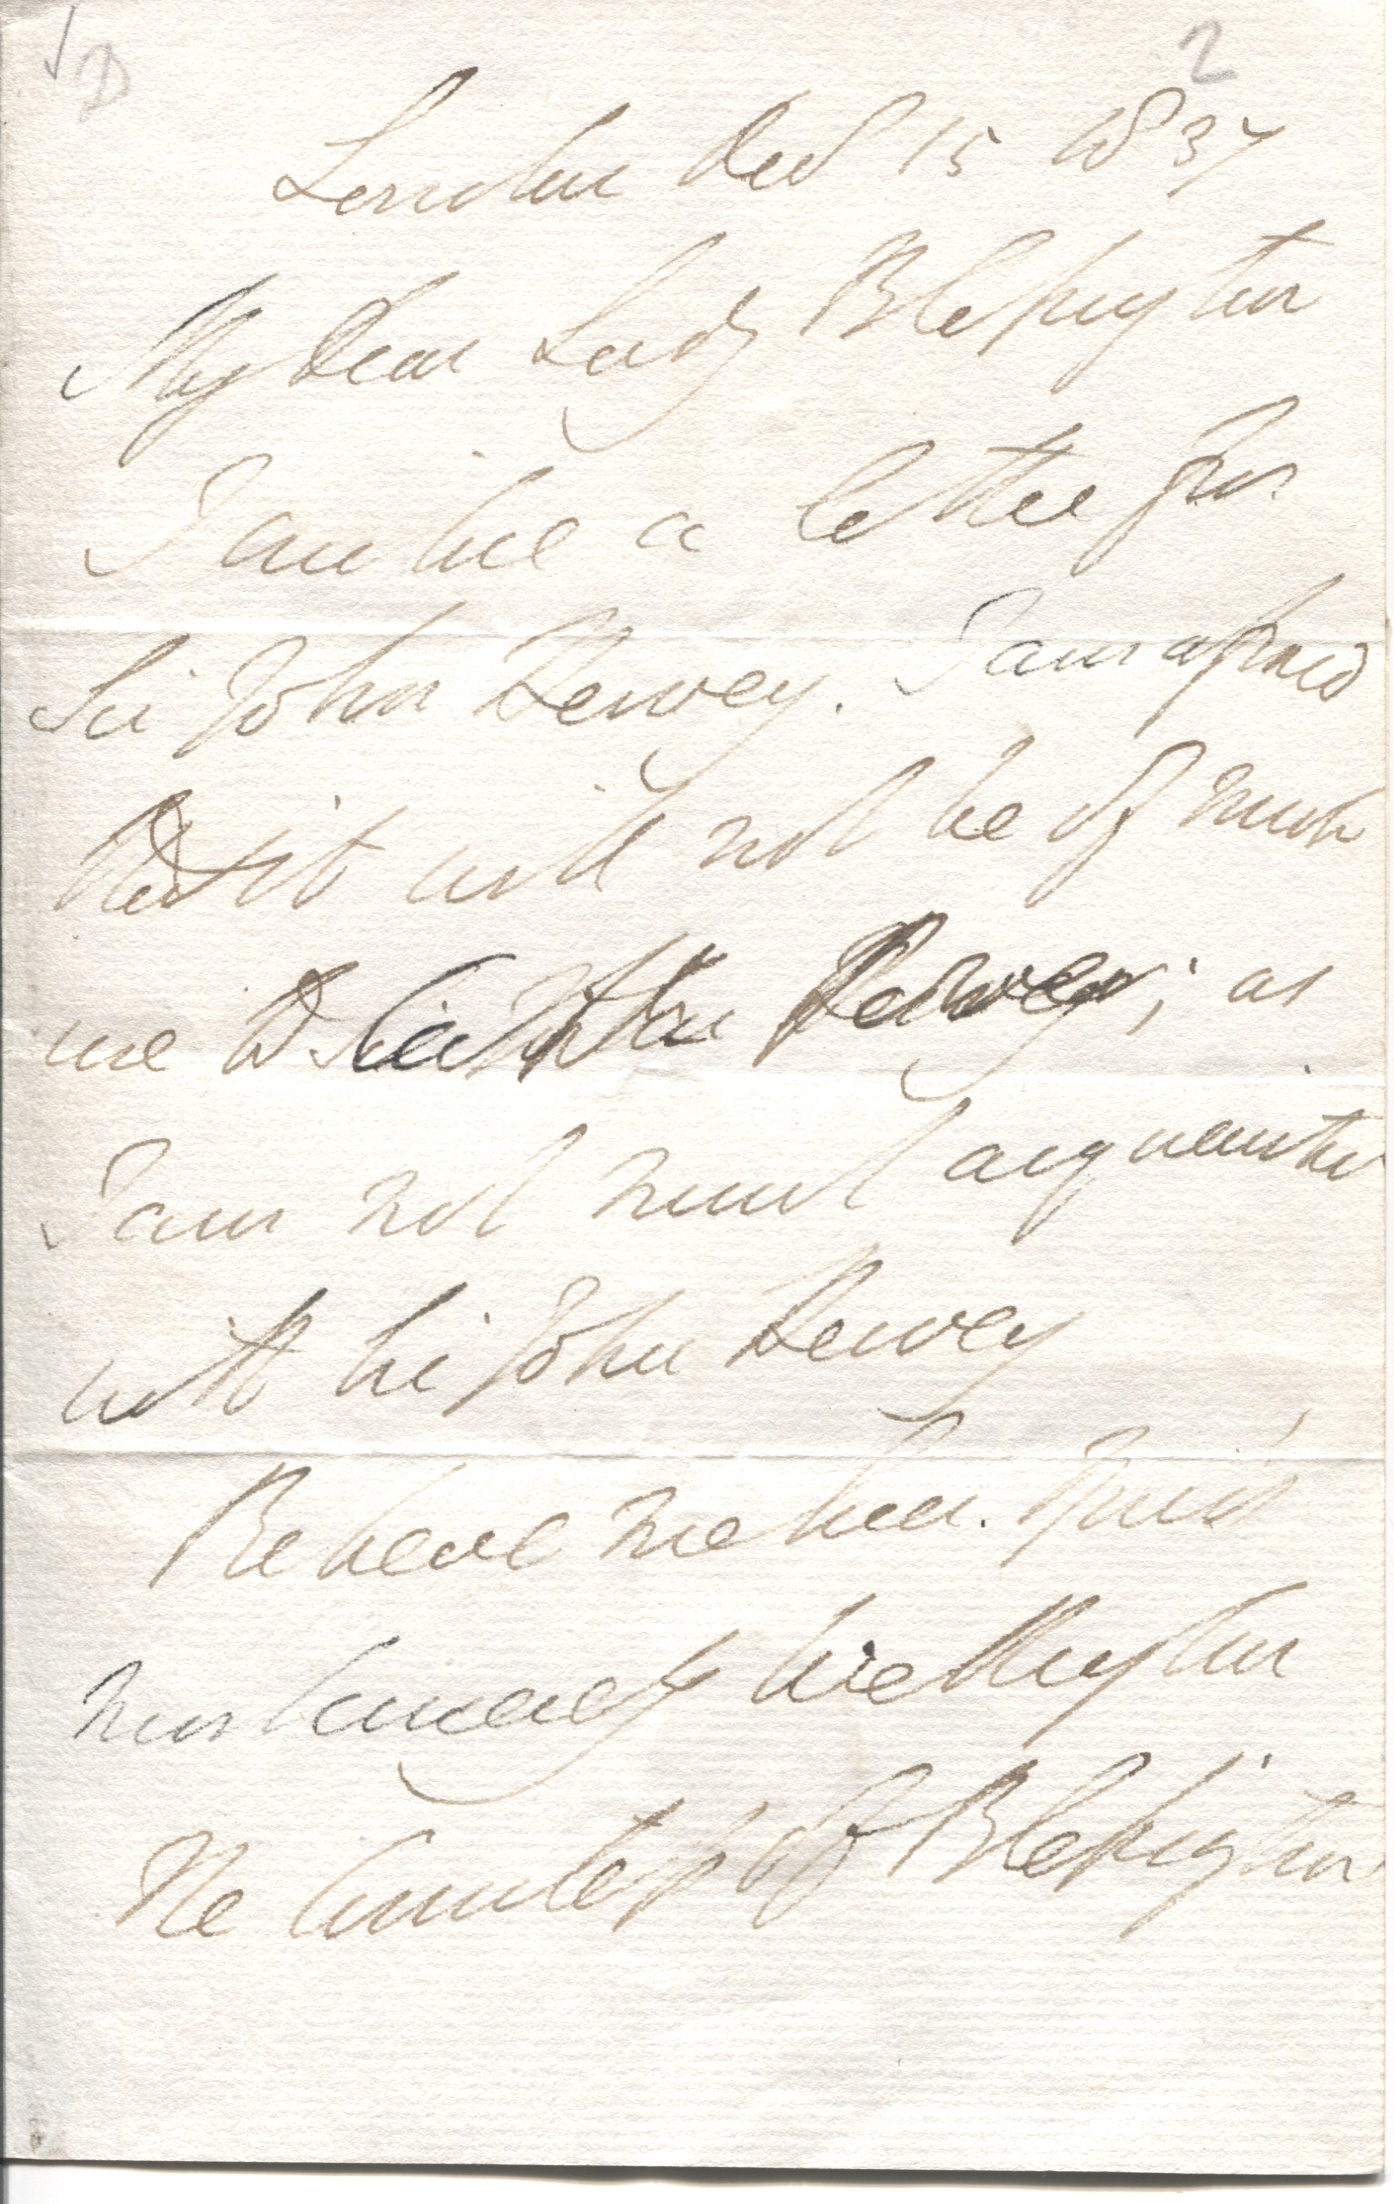 D 2
London Dec 15 1837
My Dear Lady Blessington
I enclose a letter for
Sir John Harvey. I am afraid
that it will not be of much
use to Sir John Harvey; as
I am not much acquainted
with Sir John Harvey
Believe me Ever.
most sincerely Wellington
The Countess of Blessington